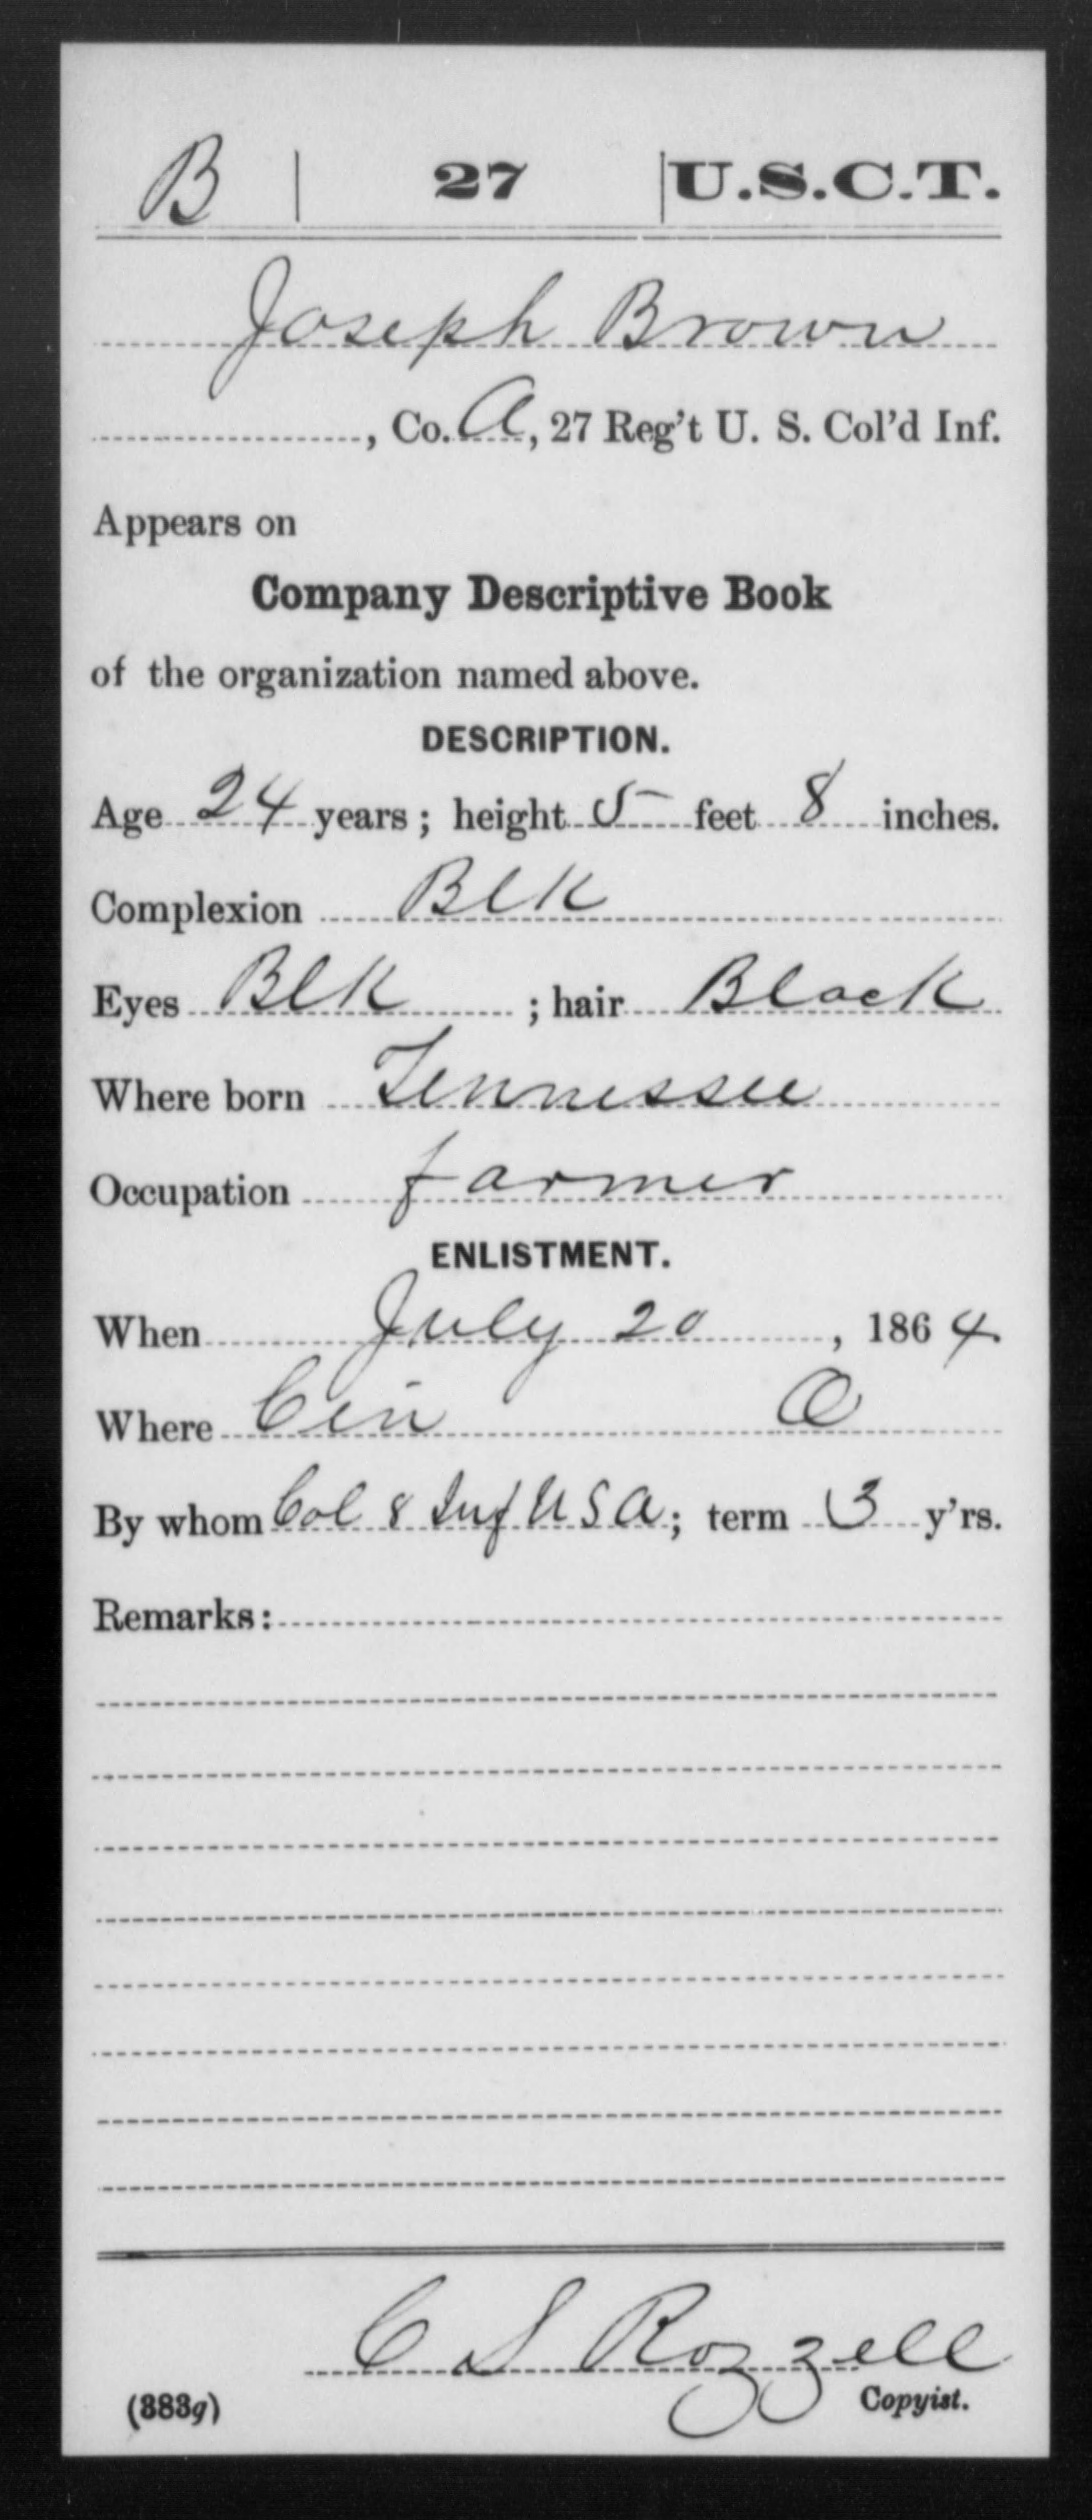 B | 27 | U.S.C.T.
Joseph Brown
, Co. A, 27 Reg't U. S. Col'd Inf.
Appears on
Company Descriptive Book
of the organization named above.
DESCRIPTION.
Age 24 years; height 5 feet 8 inches.
Complexion Blk
Eyes Blk ; hair Black
Where born Tennessee
Occupation farmer
ENLISTMENT.
When July 20, 1864.
Where Cin O
By whom Col 8 Inf U S A; term 3 y'rs.
Remarks:
C S Rozzell
(383g) Copyist.